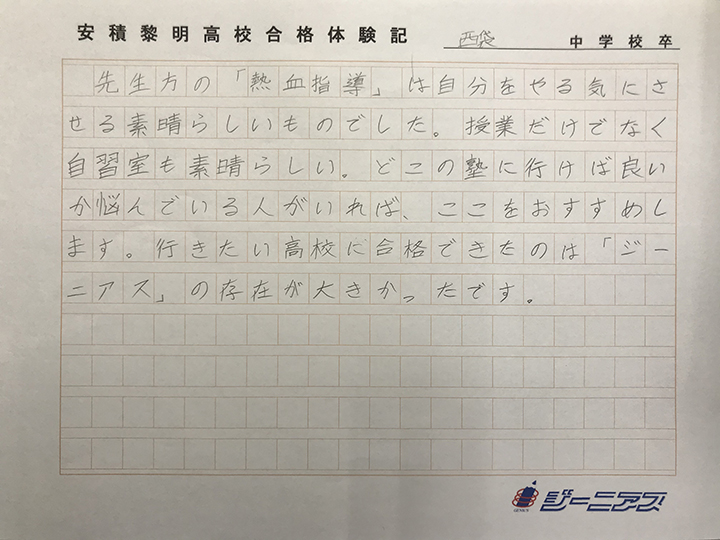 安積黎明高校合格体験記 西袋 中学校卒
先生方の「熱血指導」は自分をやる気にさ
せる素晴らしいものでした。授業だけでなく
自習室も素晴らしい。どこの塾に行けば良い
か悩んでいる人がいれば、ここをおすすめし
ます。行きたい高校に合格できたのは「ジー
ニアス」の存在が大きかったです。
GENIUS ジーニアス